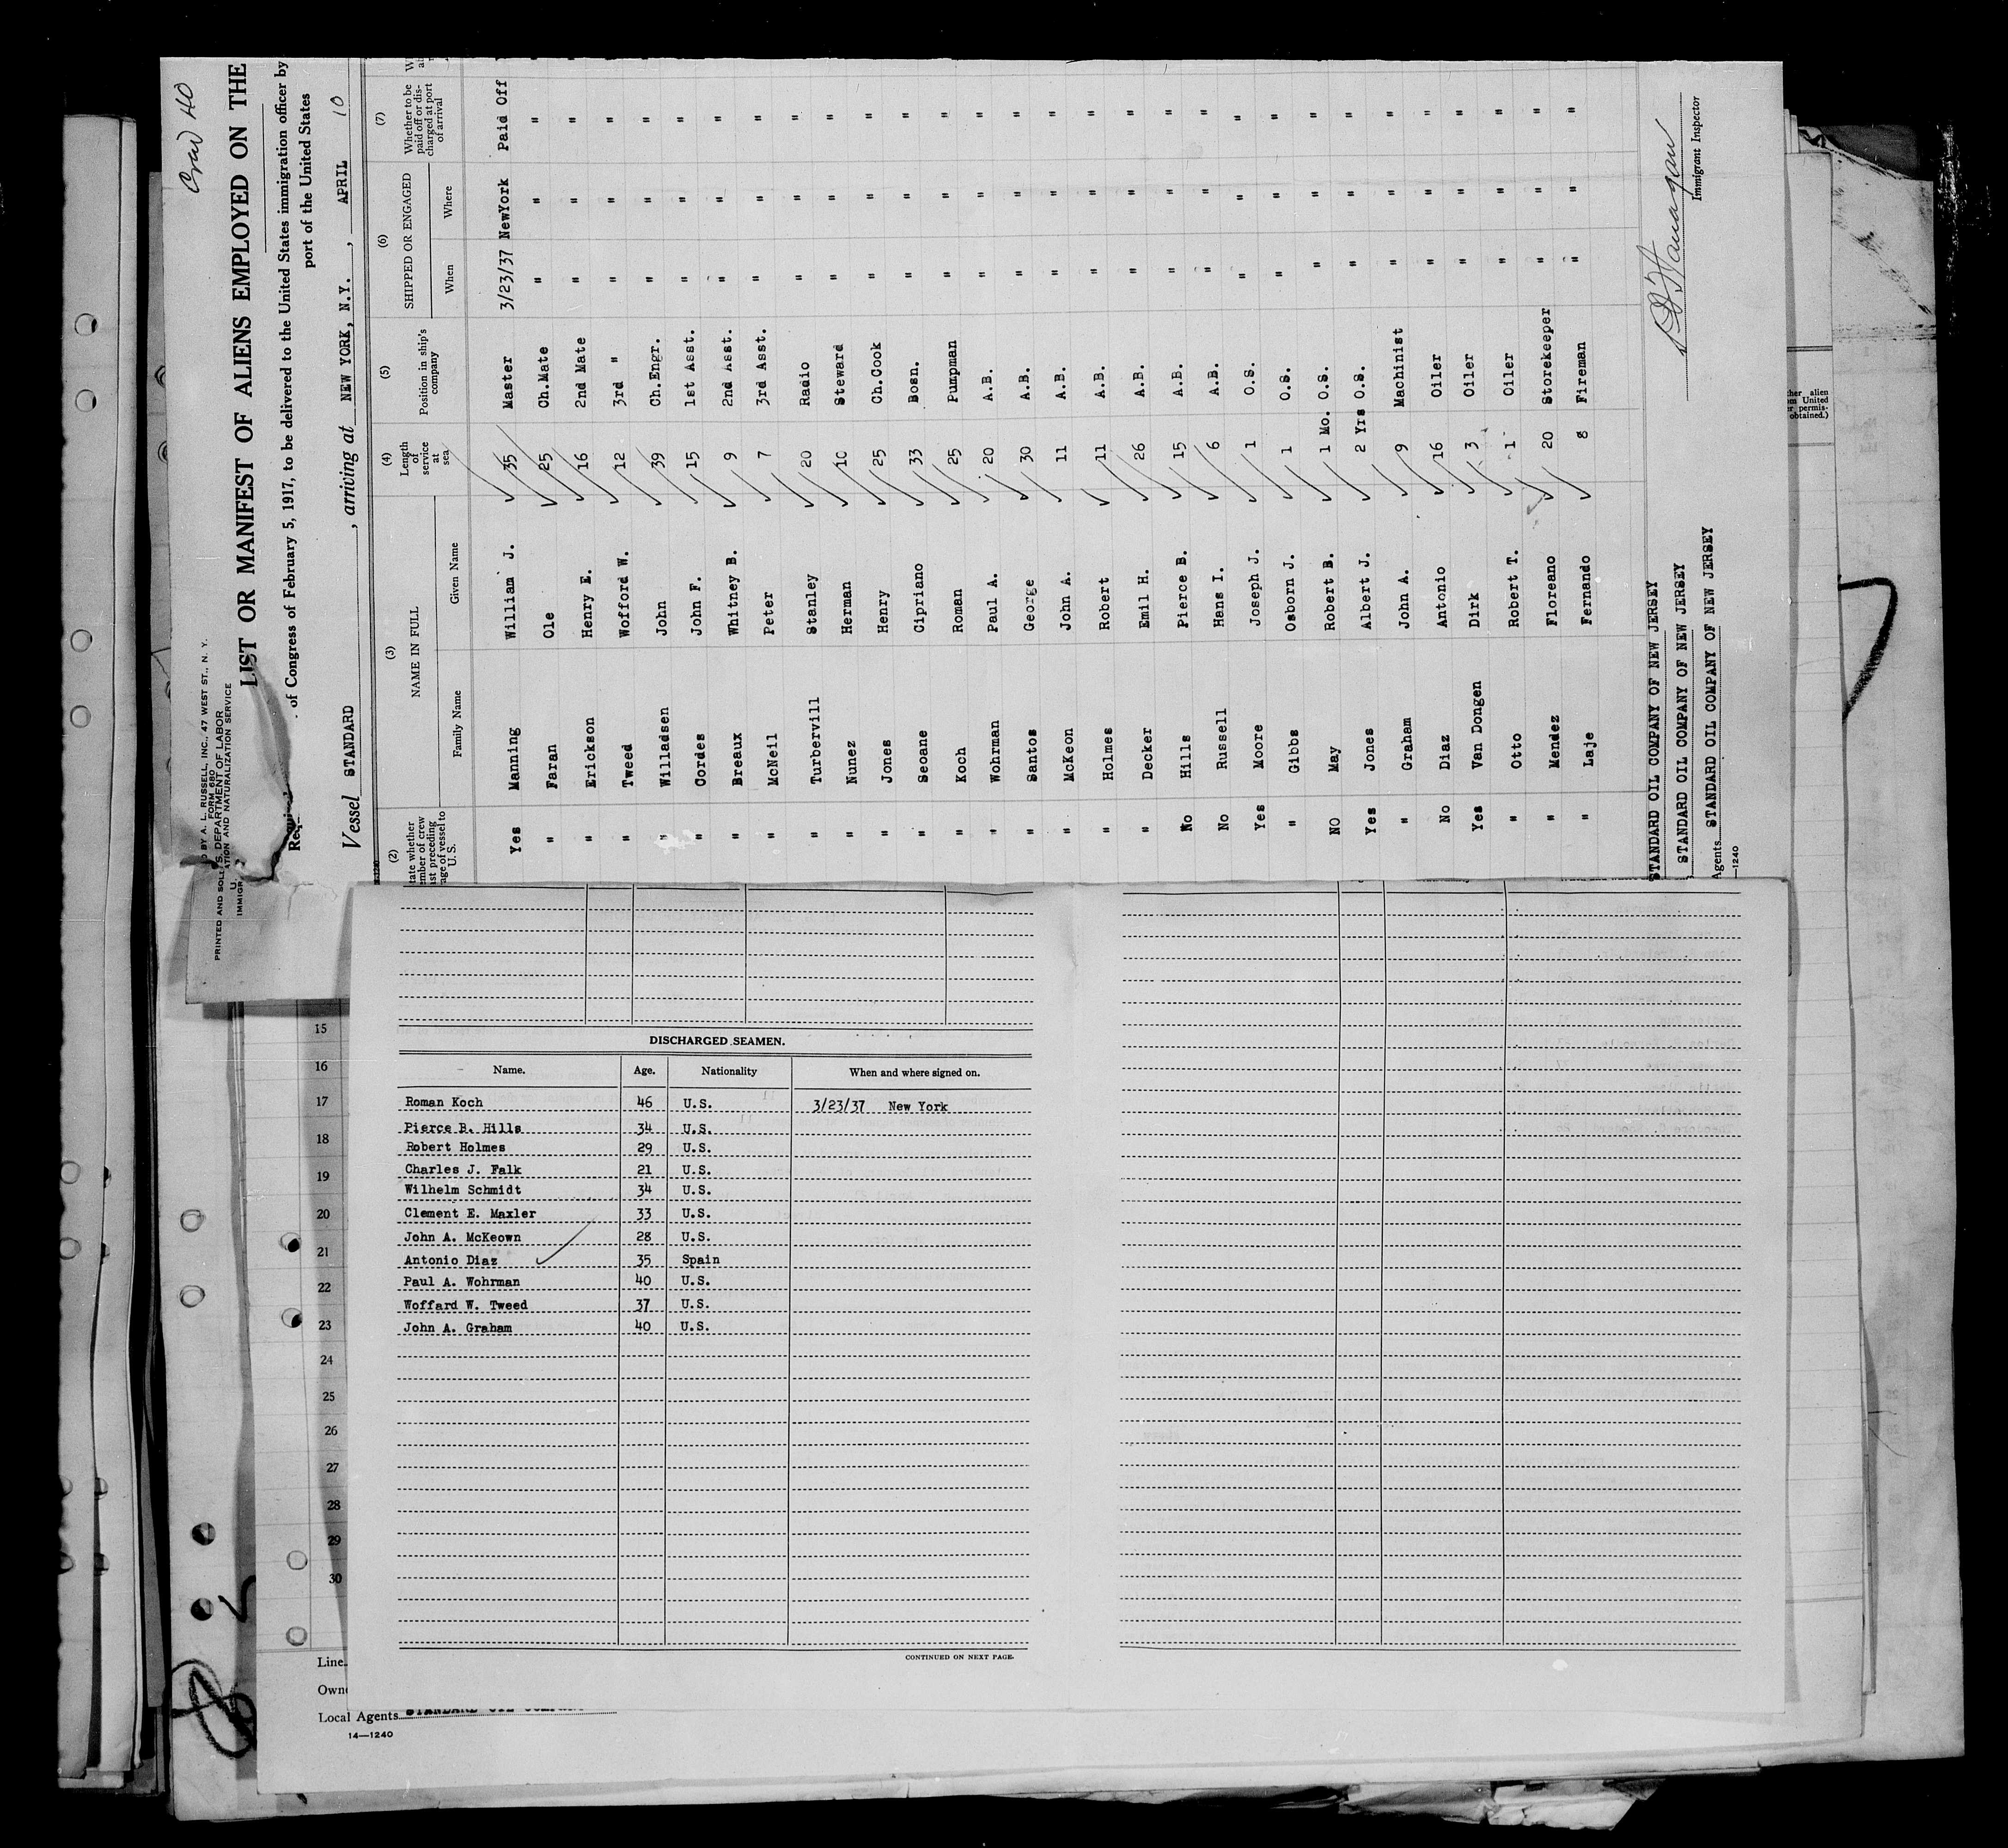 Crew 40
PRINTED AND SOLD BY A. L. RUSSELL, INC., 47 WEST ST., N. Y.
FORM 680
U. S. DEPARTMENT OF LABOR
IMMIGRATION AND NATURALIZATION SERVICE
LIST OR MANIFEST OF ALIENS EMPLOYED ON THE
of Congress of February 5, 1917, to be delivered to the United States immigration officer by
port of the United States
Vessel STANDARD, arriving at NEW YORK, N.Y., APRIL 10
(2) (3) (4) (5) (6) (7)
NAME IN FULL
Family Name Given Name
Length of service at sea
Position in ship's company
SHIPPED OR ENGAGED
When Where
Whether to be paid off or discharged at port of arrival
Yes Manning William J. 35 Master 3/23/37 NewYork Paid Off
" Faran Ole 25 Ch.Mate " " "
" Erickson Henry E. 16 2nd Mate " " "
" Tweed Wofford W. 12 3rd " " " "
" Willadsen John 39 Ch.Engr. " " "
" Cordes John F. 15 1st Asst. " " "
" Breaux Whitney B. 9 2nd Asst. " " "
" McNeil Peter 7 3rd Asst. " " "
" Turbervill Stanley 20 Radio " " "
" Nunez Herman 10 Steward " " "
" Jones Henry 25 Ch.Cook " " "
" Seoane Cipriano 33 Bosn. " " "
" Koch Roman 25 Pumpman " " "
" Wohrman Paul A. 20 A.B. " " "
" Santos George 30 A.B. " " "
" McKeon John A. 11 A.B. " " "
" Holmes Robert 11 A.B. " " "
" Decker Emil H. 26 A.B. " " "
No Hills Pierce B. 15 A.B. " " "
No Russell Hans I. 6 A.B. " " "
Yes Moore Joseph J. 1 O.S. " " "
" Gibbs Osborn J. 1 O.S. " " "
NO May Robert B. 1 Mo. O.S. " " "
Yes Jones Albert J. 2 Yrs O.S. " " "
" Graham John A. 9 Machinist " " "
No Diaz Antonio 16 Oiler " " "
Yes Van Dongen Dirk 3 Oiler " " "
" Otto Robert T. 1 Oiler " " "
" Mendez Floreano 20 Storekeeper " " "
" Laje Fernando 8 Fireman " " "
STANDARD OIL COMPANY OF NEW JERSEY
STANDARD OIL COMPANY OF NEW JERSEY
Agents STANDARD OIL COMPANY OF NEW JERSEY
—1240
Immigrant Inspector
DISCHARGED SEAMEN.
Name. Age. Nationality When and where signed on.
Roman Koch 46 U.S. 3/23/37 New York
Pierce B. Hills 34 U.S.
Robert Holmes 29 U.S.
Charles J. Falk 21 U.S.
Wilhelm Schmidt 34 U.S.
Clement E. Maxler 33 U.S.
John A. McKeown 28 U.S.
Antonio Diaz 35 Spain
Paul A. Wohrman 40 U.S.
Woffard W. Tweed 37 U.S.
John A. Graham 40 U.S.
CONTINUED ON NEXT PAGE.
15
16
17
18
19
20
21
22
23
24
25
26
27
28
29
30
Line
Local Agents STANDARD OIL
14—1240